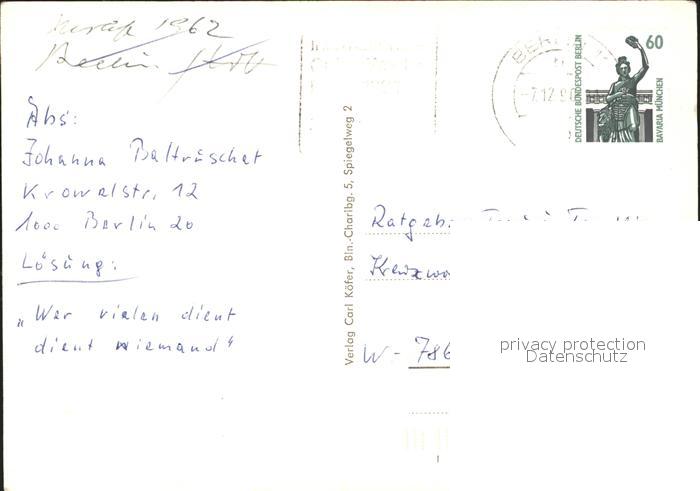 1962
Berlin
Abs:
Johanna Baltruschat
Krowelstr. 12
1000 Berlin 20
Lösung:
„Wer vielen dient
dient niemand"
Verlag Carl Köfer, Bln.-Charlbg. 5, Spiegelweg 2
BER
-7.12.90
60
DEUTSCHE BUNDESPOST BERLIN
BAVARIA MÜNCHEN
Ratgeb
Kreuzwo
W- 786
privacy protection
Datenschutz